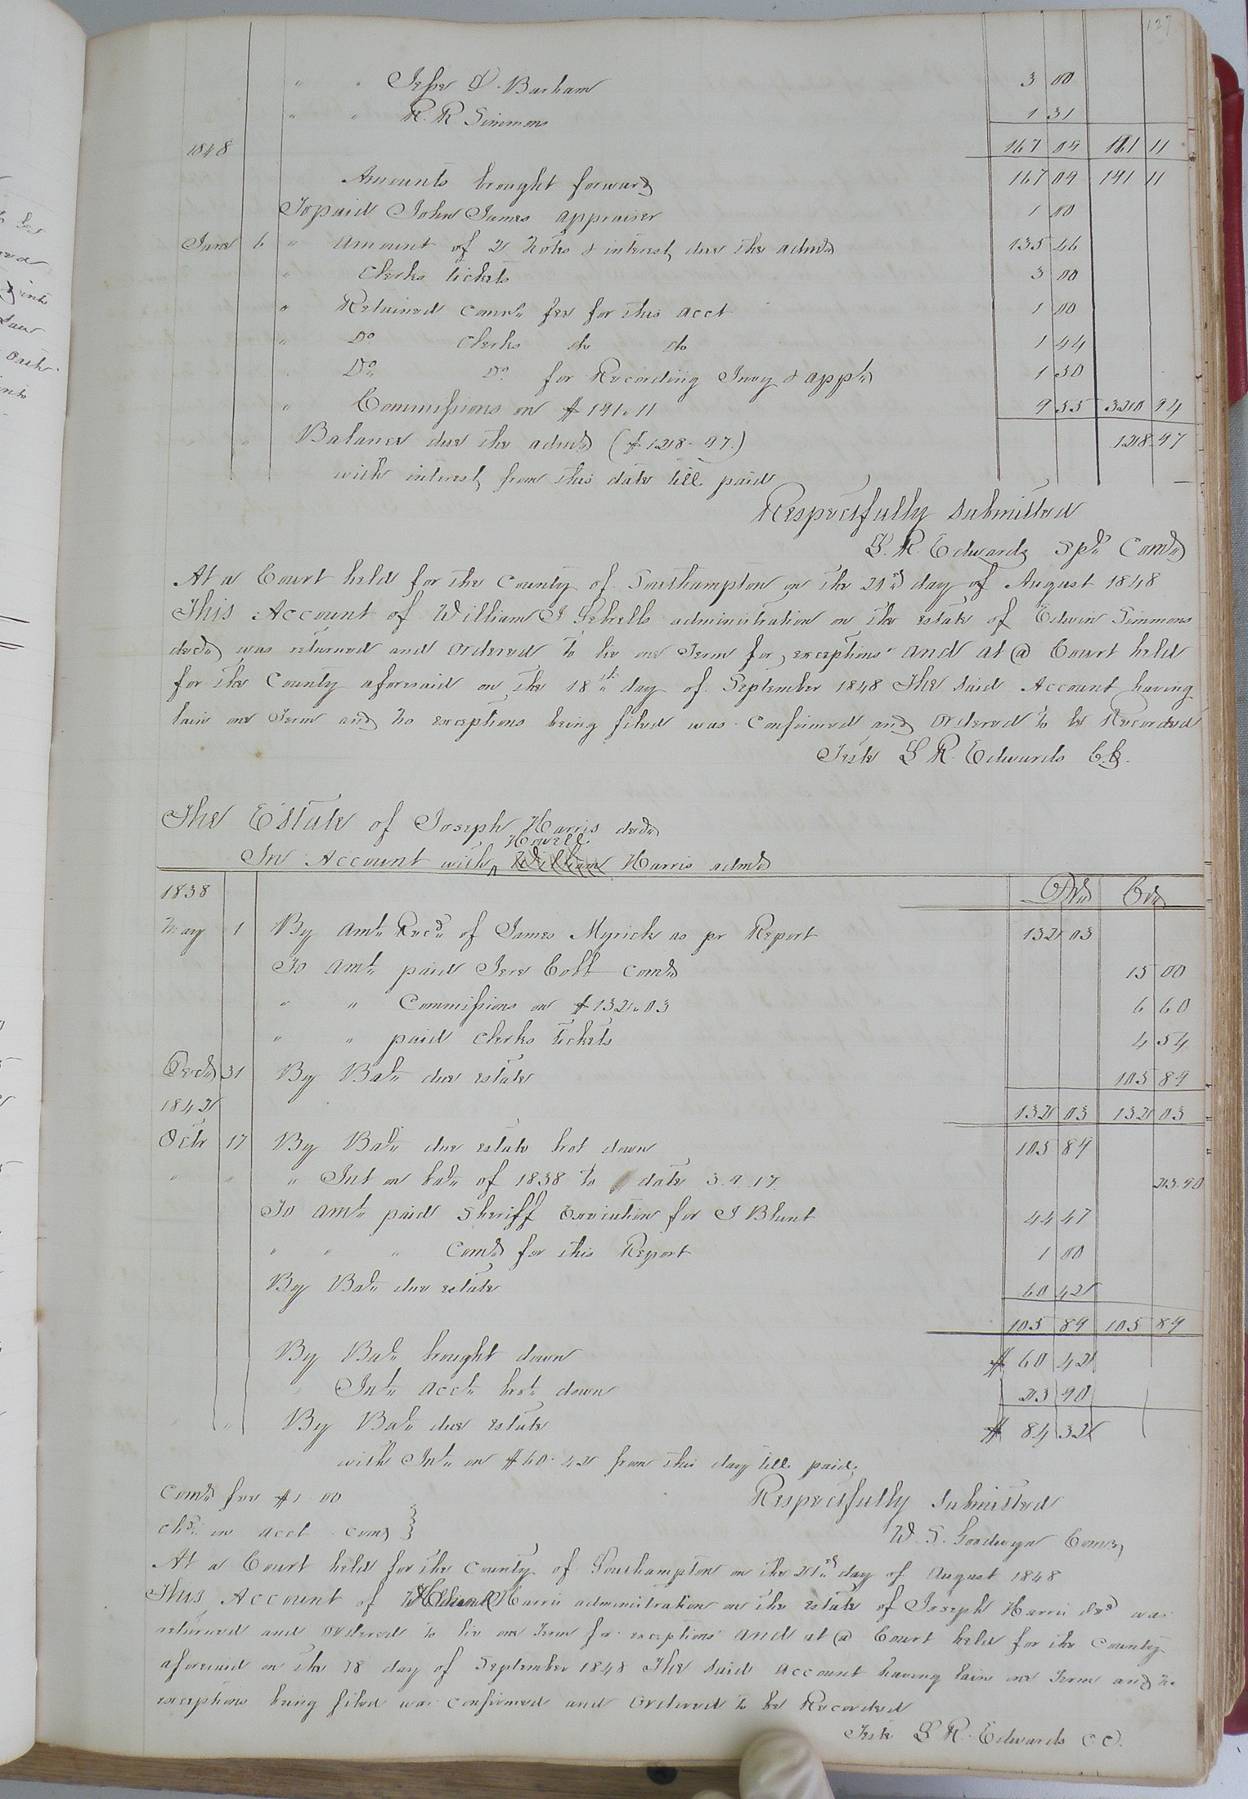 127
" " Jesse D. Barham 3 00
" " R. R Simmons 1 31
1848 167 09 191 11
Amounts brought forward 167 09 191 11
To paid John James appraiser 1 00
June 6 " Amount of 2 Notes & interest due the admr 135 46
" Clerks tickets 3 00
" Retained comrs fee for this acct 1 00
" Do Clerks do do 1 44
" Do Do for Recording Invy & appt 1 30
" Commissions on $191.11 9 55 320 94
" Balance due the admr ($128.97.) 128 97
with interest from this date till paid
Respectfully Submitted
L. R Edwards Spl Comr
At a Court held for the County of Southampton on the 21st day of August 1848
This Account of William J Sebrells administration on the estate of Edwin Simmons
decd, was returned and ordered to lie one Term for exceptions and at a Court held
for the County aforesaid on the 18th day of September 1848 The Said Account having
lain one Term and no exceptions being filed was confirmed and ordered to be Recorded
Teste L R. Edwards C.C.
The Estate of Joseph Harris decd
Howell
In Account with William Harris admr
1838 Drs Crs
May 1 By Amt Recd of James Myrick as pr Report 132 03
To Amt paid Jere Cobb Comr 15 00
" " Commissions on $132.03 6 60
" " paid Clerks tickets 4 54
Decr 31 By Bale due estate 105 89
1842 132 03 132 03
Octr 17 By Bale due estate brot down 105 89
" " " Int on bale of 1838 to date 3.9.17 23.90
To Amt paid Sheriff Execution for J Blunt 44 47
" " " Comr for this Report 1 00
By Bale due estate 60 42
105 89 105 89
By Bale brought down $ 60 42
" Int acct brot down 23 90
" " By Bale due estate $ 84 32
with Int on $60.42 from this day till paid,
Comr fee $1.00 Respectfully Submitted
chd in acct Comr W. S. Goodwyn Comr,
At a Court held for the County of Southampton on the 21st day of August 1848
This Account of Howell Harris administration on the estate of Joseph Harris decd was
returned and ordered to lie one Term for exceptions and at a Court held for the County
aforesaid on the 18 day of September 1848 The Said account having lain one Term and no
exceptions being filed was confirmed and Ordered to be Recorded
Teste L R. Edwards C C.